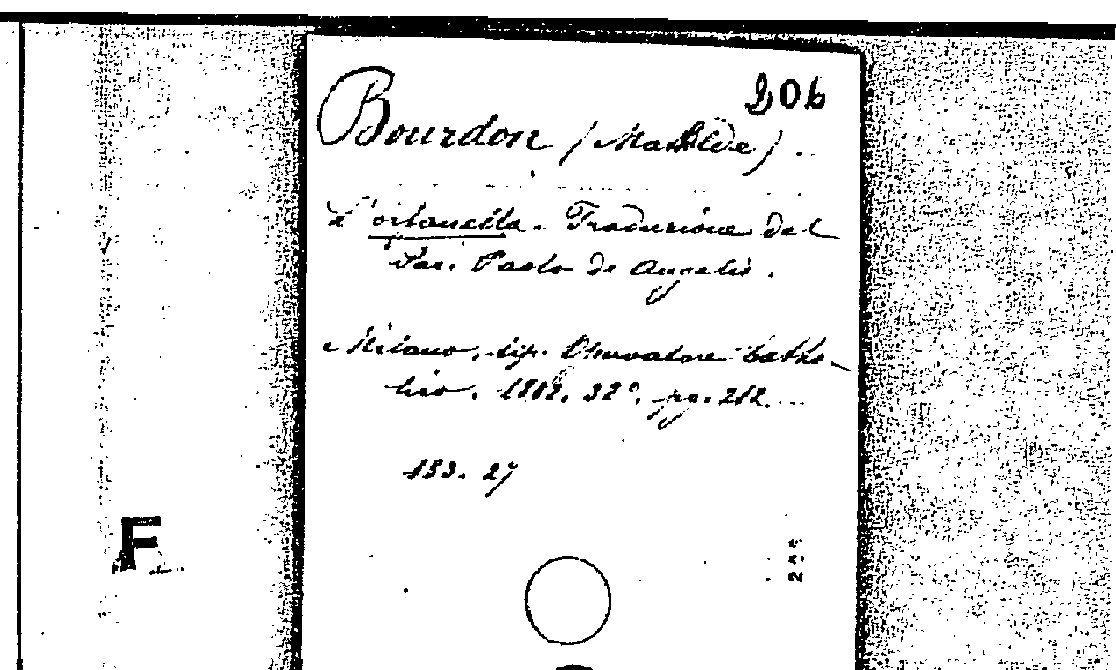 206
Bourdon (Matilde).
L'orfanella. Traduzione del
Sac. Paolo de Angelis.
Milano, tip. Osservatore Catto-
lico. 1882. 32°. pg. 212.
133. 27
F
255